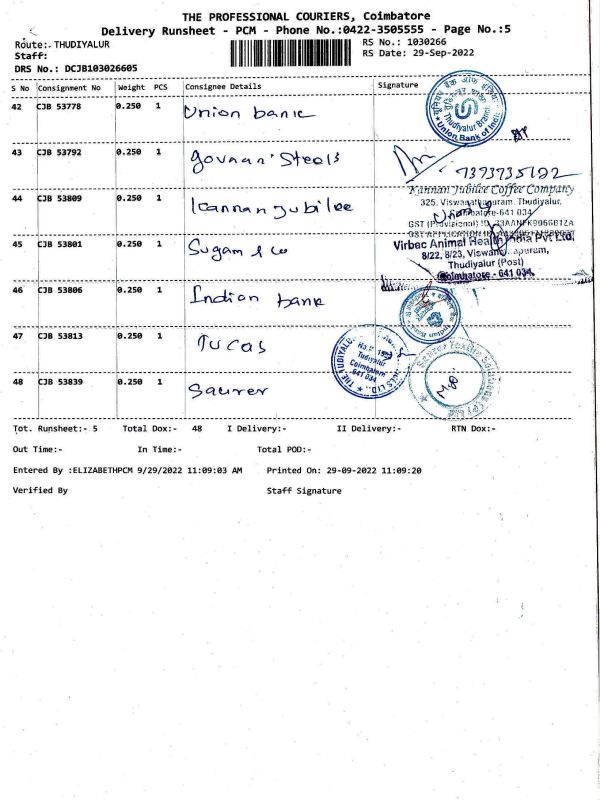 THE PROFESSIONAL COURIERS, Coimbatore
Delivery Runsheet - PCM - Phone No.:0422-3505555 - Page No.:5
Route:. THUDIYALUR
RS No.: 1030266
Staff:
RS Date: 29-Sep-2022
DRS No.: DCJB103026605
S No Consignment No Weight PCS Consignee Details Signature
42 CJB 53778 0.250 1 Union bank
Thudiyalur Branch
Union Bank of India
43 CJB 53792 0.250 1 Steels
7373735122
44 CJB 53809 0.250 1 Kannan Jubilee
Kannan Jubilee Coffee Company
325, Viswanathapuram, Thudiyalur,
Coimbatore-641 034
GST (Provisional) ID
45 CJB 53801 0.250 1 Sugam & co
Virbec Animal Health India Pvt Ltd,
8/22, 8/23,
Thudiyalur (Post)
Coimbatore - 641 034.
46 CJB 53806 0.250 1 Indian bank
47 CJB 53813 0.250 1 TUCAS
Thudiyalur
Coimbatore
641 034
48 CJB 53839 0.250 1 Saurer
Tot. Runsheet:- 5 Total Dox:- 48 I Delivery:- II Delivery:- RTN Dox:-
Out Time:- In Time:- Total POD:-
Entered By :ELIZABETHPCM 9/29/2022 11:09:03 AM Printed On: 29-09-2022 11:09:20
Verified By Staff Signature